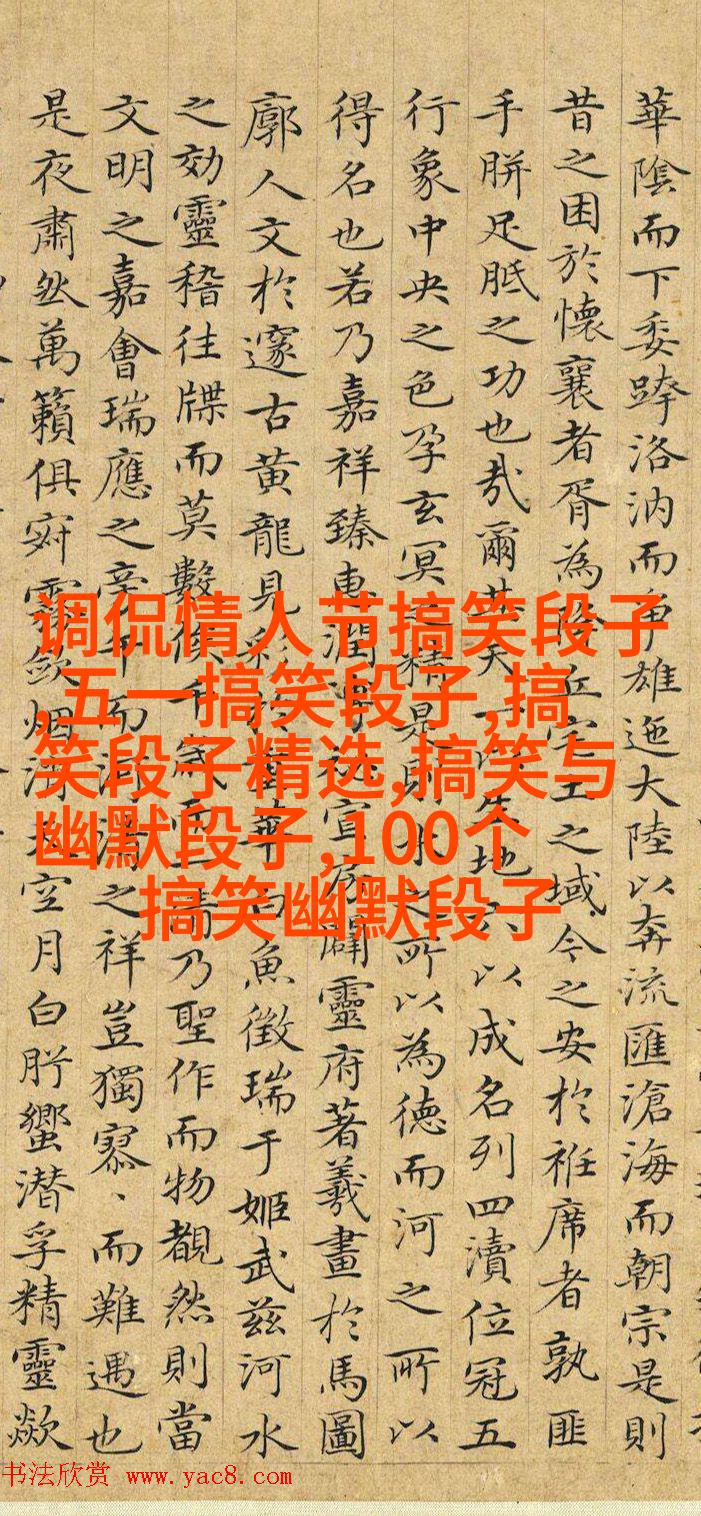 華陰而下委跨洛汭而爭雄迤大陸以奔流匯滄海而朝宗是則
昔之困於懷襄者胥為降丘宅土之域今之安於袵席者孰匪
手胼足胝之功也哉爾其天一以生地六以成名列四瀆位冠五
行象中央之色孕玄冥之精是則水之所以為德而河之所以
得名也若乃嘉祥臻惠潤溥祝宣房闢靈府著羲畫於馬圖
廓人文於邃古黃龍見彩於華白魚徵瑞于姬武茲河水
之効靈稽往牒而莫數俟千歲而一清乃聖作而物覩然則當
文明之嘉會瑞應之旁午而河清之祥豈獨寡、而難遇也
是夜肅然萬籟俱寂歛烟消天空月白肸蠁潜孚精靈歘
调侃情人节搞笑段子
,五一搞笑段子,搞
笑段子精选,搞笑与
幽默段子,100个
搞笑幽默段子
书法欣赏 www.yac8.com